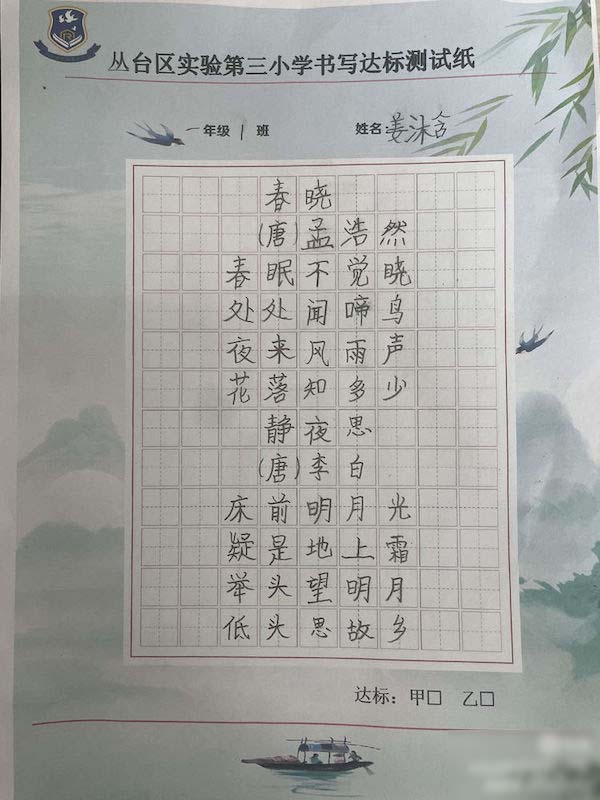 丛台区实验第三小学书写达标测试纸
一年级 1 班 姓名 姜沐含
春晓
(唐)孟浩然
春眠不觉晓
处处闻啼鸟
夜来风雨声
花落知多少
静夜思
(唐)李白
床前明月光
疑是地上霜
举头望明月
低头思故乡
达标：甲□ 乙□